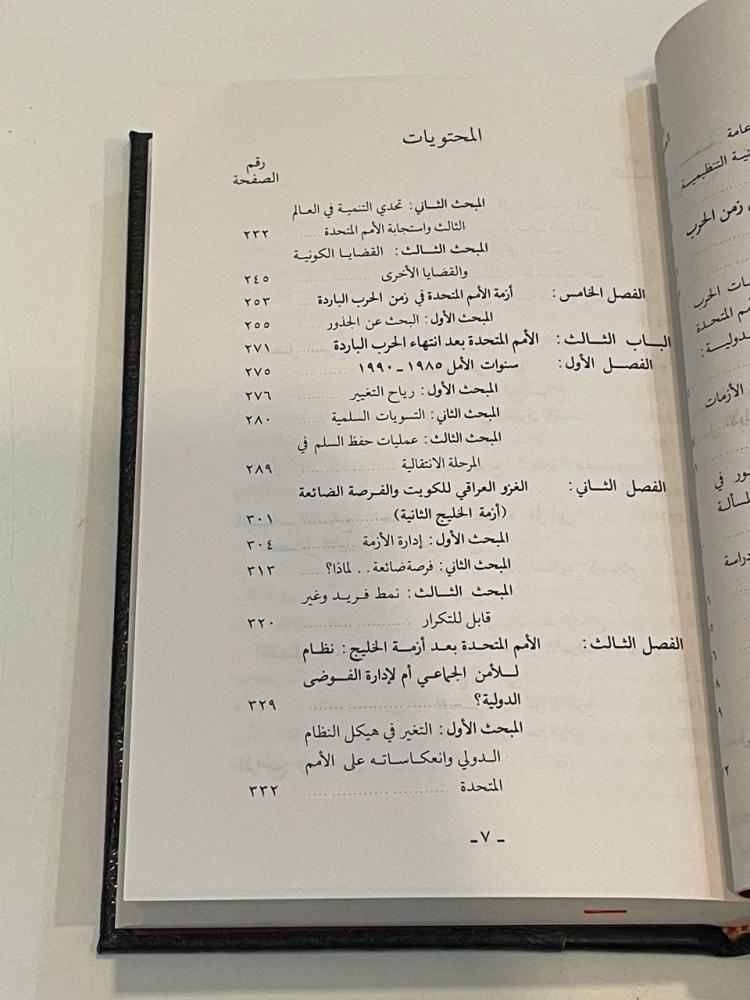 المحتويات
رقم
الصفحة
المبحث الثاني: تحدي التنمية في العالم
الثالث واستجابة الأمم المتحدة ٢٣٢
المبحث الثالث: القضايا الكونية
والقضايا الأخرى ٢٤٥
الفصل الخامس: أزمة الأمم المتحدة في زمن الحرب الباردة ٢٥٣
المبحث الأول: البحث عن الجذور ٢٥٥
الباب الثالث: الأمم المتحدة بعد انتهاء الحرب الباردة ٢٧١
الفصل الأول: سنوات الأمل ١٩٨٥ - ١٩٩٠ ٢٧٥
المبحث الأول: رياح التغيير ٢٧٦
المبحث الثاني: التسويات السلمية ٢٨٠
المبحث الثالث: عمليات حفظ السلم في
المرحلة الانتقالية ٢٨٩
الفصل الثاني: الغزو العراقي للكويت والفرصة الضائعة
(أزمة الخليج الثانية) ٣٠١
المبحث الأول: إدارة الأزمة ٣٠٤
المبحث الثاني: فرصة ضائعة.. لماذا؟ ٣١٣
المبحث الثالث: نمط فريد وغير
قابل للتكرار ٣٢٠
الفصل الثالث: الأمم المتحدة بعد أزمة الخليج: نظام
للأمن الجماعي أم لإدارة الفوضى
الدولية؟ ٣٢٩
المبحث الأول: التغير في هيكل النظام
الدولي وانعكاساته على الأمم
المتحدة ٣٣٢
- ٧ -
عامة
التنظيمية
زمن الحرب
الحرب
المتحدة
الأزمات
في
دراسة